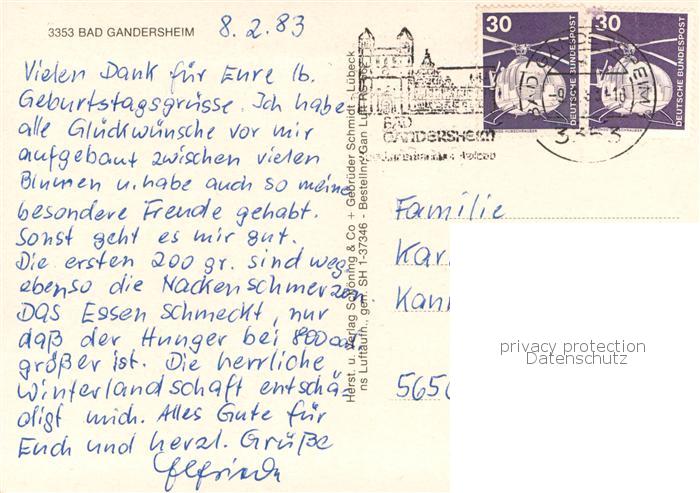 3353 BAD GANDERSHEIM
8.2.83
Vielen Dank für Eure lb.
Geburtstagsgrüsse. Ich habe
alle Glückwünsche vor mir
aufgebaut zwischen vielen
Blumen u. habe auch so meine
besondere Freude gehabt.
Sonst geht es mir gut.
Die ersten 200 gr. sind weg
ebenso die Nackenschmerzen.
DAS Essen schmeckt, nur
daß der Hunger bei 800 cal
größer ist. Die herrliche
Winterlandschaft entschä-
digt mich. Alles Gute für
Euch und herzl. Grüße
Elfriede
Herst. u. Verlag Schöning & Co + Gebrüder Schmidt - Lübeck
ns Luftaufn., gen. SH 1-37346 - Bestellnr. Gan
BAD
GANDERSHEIM
30
DEUTSCHE BUNDESPOST
30
DEUTSCHE BUNDESPOST
3353
Familie
Kar
Kan
565
privacy protection
Datenschutz